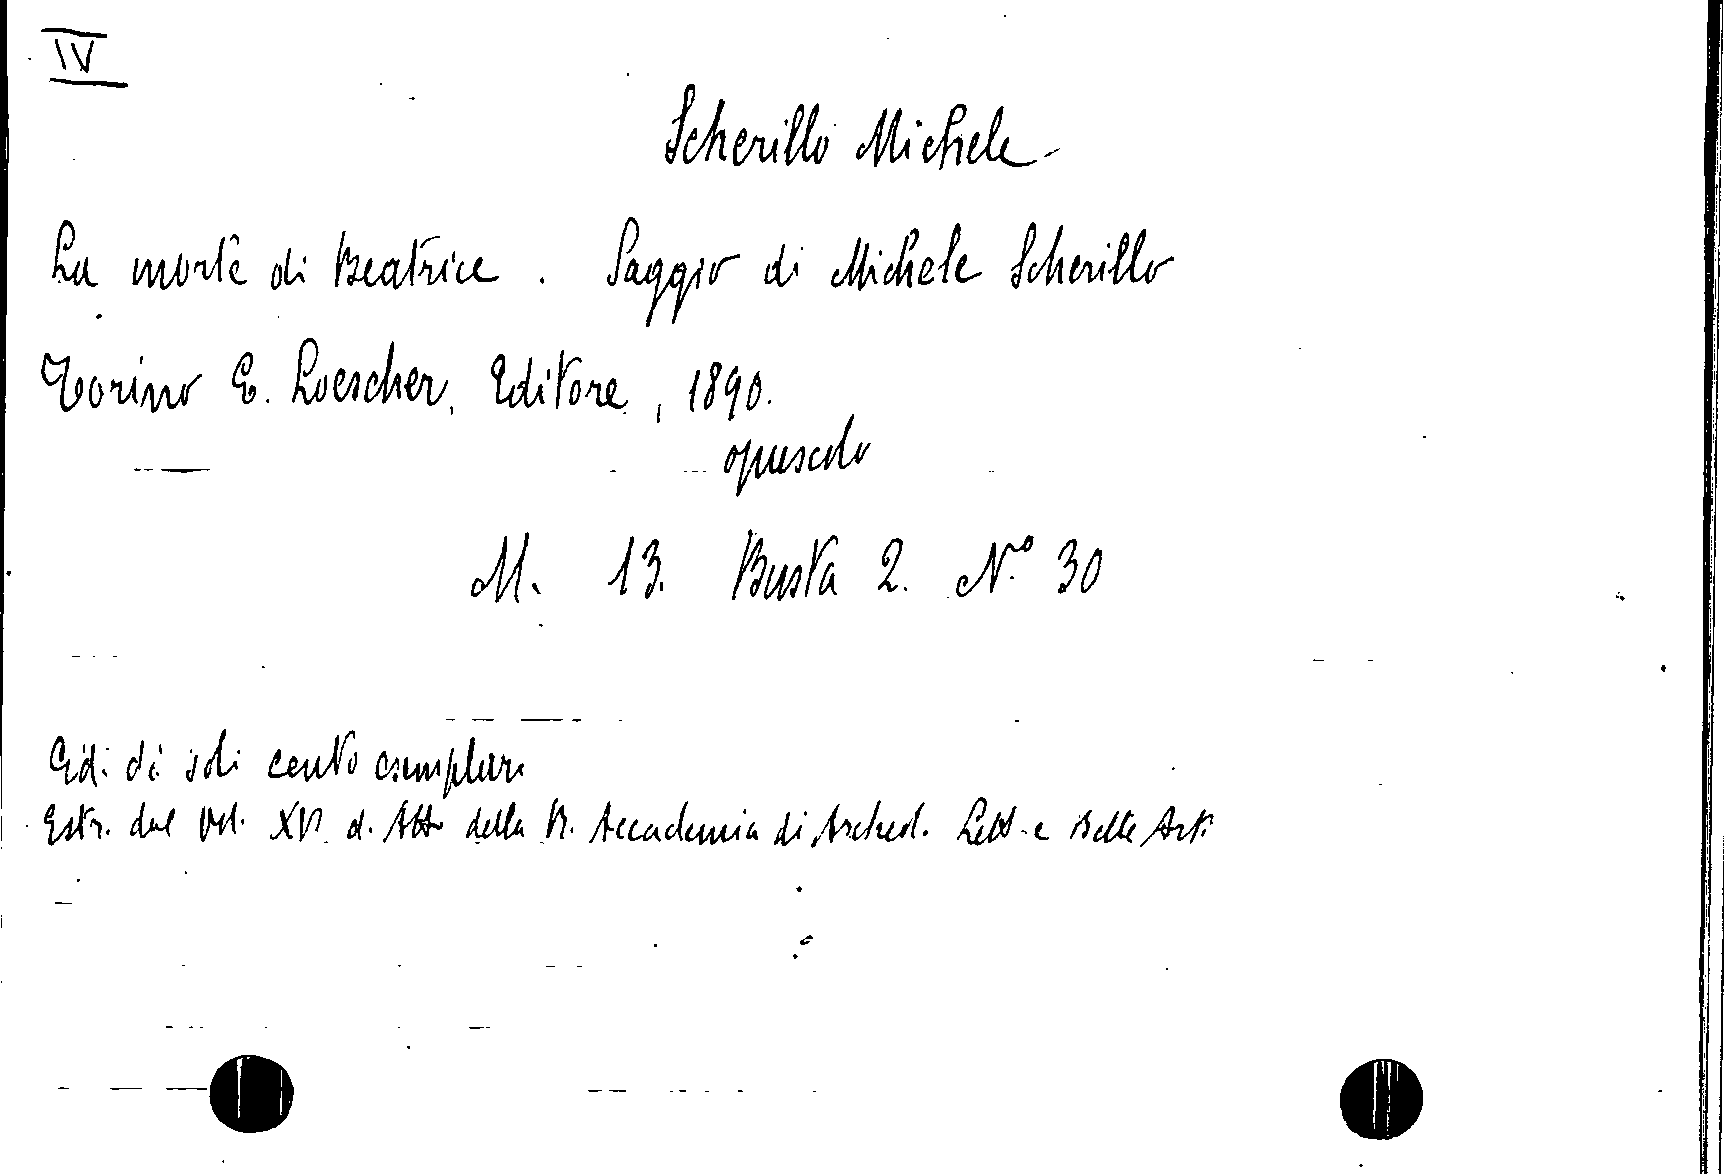 IV
Scherillo Michele
La morte di Beatrice. Saggio di Michele Scherillo
Torino E. Loescher, Editore, 1890.
opuscolo
M. 13. Busta 2. N.º 30
Ediz. di soli cento esemplari
Estr. dal Vol. XVI d. Atti della R. Accademia di Archeol. Lett. e Belle Arti